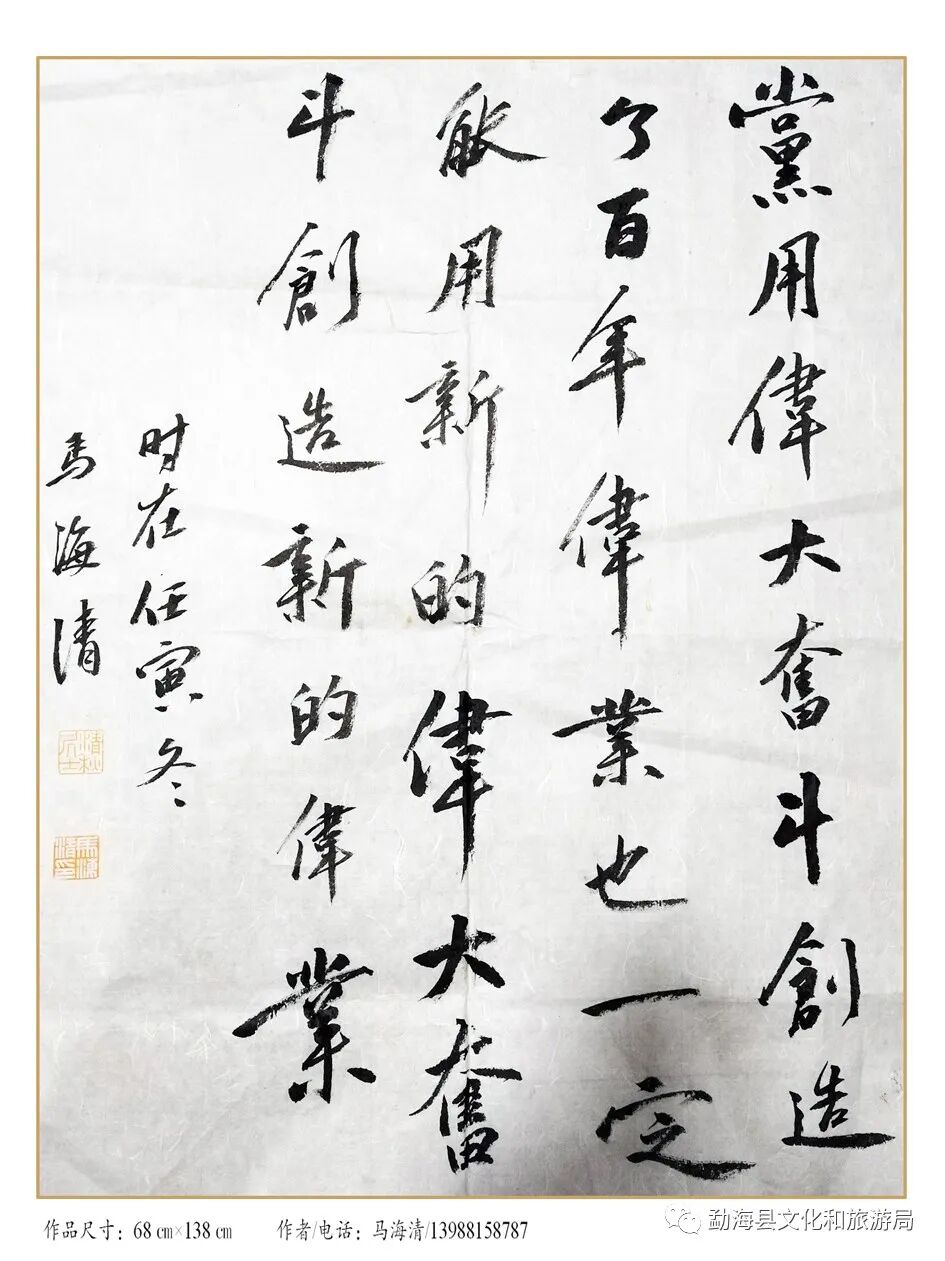 黨用偉大奮斗創造
了百年偉業也一定
能用新的偉大奮
斗創造新的偉業
时在任寅冬
马海清
作品尺寸：68㎝×138㎝ 作者/电话：马海清/13988158787
勐海县文化和旅游局